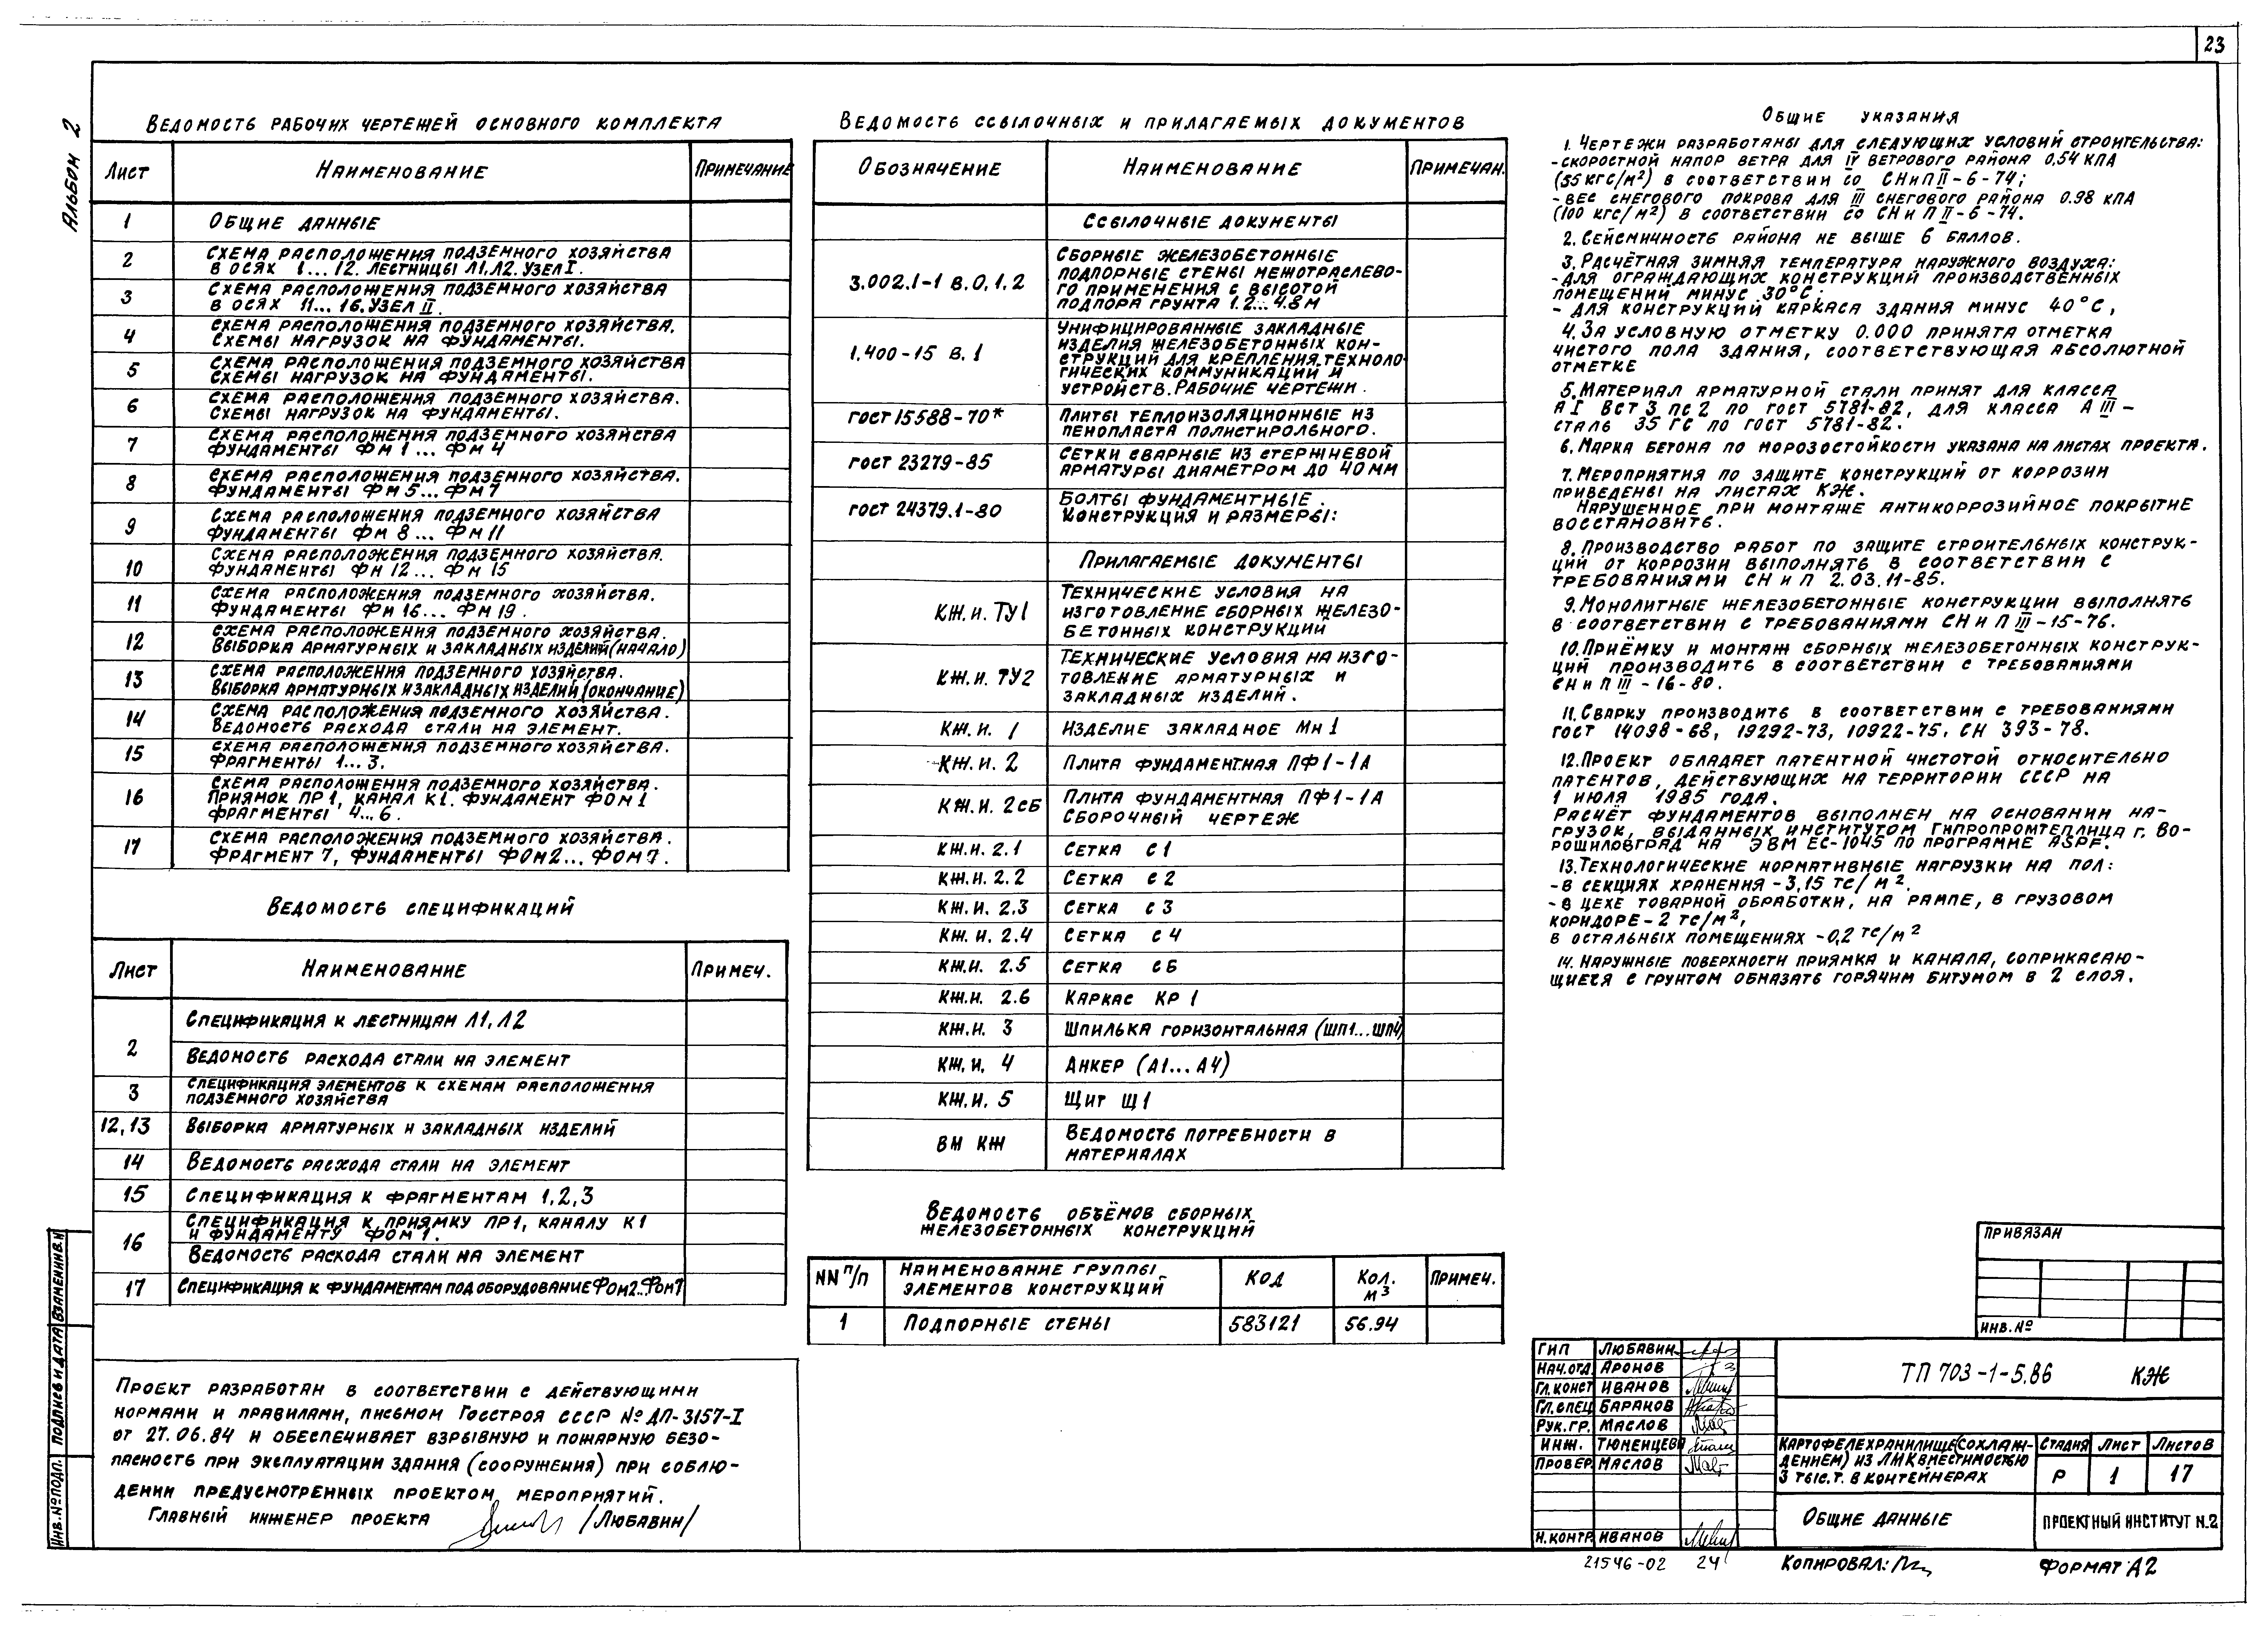 23
Альбом 2
Ведомость рабочих чертежей основного комплекта
Лист Наименование Примечание
1 Общие данные
2 Схема расположения подземного хозяйства
в осях 1...12. Лестницы Л1, Л2. Узел I.
3 Схема расположения подземного хозяйства
в осях 11...16. Узел II.
4 Схема расположения подземного хозяйства.
Схемы нагрузок на фундаменты.
5 Схема расположения подземного хозяйства
Схемы нагрузок на фундаменты.
6 Схема расположения подземного хозяйства.
Схемы нагрузок на фундаменты.
7 Схема расположения подземного хозяйства
Фундаменты Фм 1 ... Фм 4
8 Схема расположения подземного хозяйства.
Фундаменты Фм 5 ... Фм 7
9 Схема расположения подземного хозяйства
Фундаменты Фм 8 ... Фм 11
10 Схема расположения подземного хозяйства.
Фундаменты Фм 12 ... Фм 15
11 Схема расположения подземного хозяйства.
Фундаменты Фм 16 ... Фм 19.
12 Схема расположения подземного хозяйства.
Выборка арматурных и закладных изделий (начало)
13 Схема расположения подземного хозяйства.
Выборка арматурных и закладных изделий (окончание)
14 Схема расположения подземного хозяйства.
Ведомость расхода стали на элемент.
15 Схема расположения подземного хозяйства.
Фрагменты 1...3.
16 Схема расположения подземного хозяйства.
Приямок ПР1, канал К1. Фундамент ФОМ1
Фрагменты 4...6.
17 Схема расположения подземного хозяйства.
Фрагмент 7, фундаменты ФОм2... ФОм7.
Ведомость спецификаций
Лист Наименование Примеч.
2 Спецификация к лестницам Л1, Л2
Ведомость расхода стали на элемент
3 Спецификация элементов к схемам расположения
подземного хозяйства
12,13 Выборка арматурных и закладных изделий
14 Ведомость расхода стали на элемент
15 Спецификация к фрагментам 1,2,3
16 Спецификация к приямку ПР1, каналу К1
и фундаменту ФОм1.
Ведомость расхода стали на элемент
17 Спецификация к фундаментам под оборудование ФОм2...ФОм7
Проект разработан в соответствии с действующими
нормами и правилами, письмом Госстроя СССР № ДП-3157-I
от 27.06.84 и обеспечивает взрывную и пожарную безо-
пасность при эксплуатации здания (сооружения) при соблю-
дении предусмотренных проектом мероприятий.
Главный инженер проекта /Любавин/
Ведомость ссылочных и прилагаемых документов
Обозначение Наименование Примечан.
Ссылочные документы
3.002.1-1 В.0,1,2 Сборные железобетонные
подпорные стены межотраслево-
го применения с высотой
подпора грунта 1.2... 4.8 м
1.400-15 В.1 Унифицированные закладные
изделия железобетонных кон-
струкций для крепления техноло-
гических коммуникаций и
устройств. Рабочие чертежи.
ГОСТ 15588-70* Плиты теплоизоляционные из
пенопласта полистирольного.
ГОСТ 23279-85 Сетки сварные из стержневой
арматуры диаметром до 40 мм
ГОСТ 24379.1-80 Болты фундаментные.
Конструкция и размеры:
Прилагаемые документы
КЖ.и. ТУ1 Технические условия на
изготовление сборных железо-
бетонных конструкций
КЖ.и. ТУ2 Технические условия на изго-
товление арматурных и
закладных изделий.
КЖ.и. 1 Изделие закладное Мн 1
КЖ.и. 2 Плита фундаментная ПФ1-1А
КЖ.и. 2сб Плита фундаментная ПФ1-1А
Сборочный чертеж
КЖ.и. 2.1 Сетка С1
КЖ.и. 2.2 Сетка С2
КЖ.и. 2.3 Сетка С3
КЖ.и. 2.4 Сетка С4
КЖ.и. 2.5 Сетка С5
КЖ.и. 2.6 Каркас КР 1
КЖ.и. 3 Шпилька горизонтальная (ШП1...ШП4)
КЖ.и. 4 Анкер (А1...А4)
КЖ.и. 5 Щит Щ1
ВМ КЖ Ведомость потребности в
материалах
Ведомость объёмов сборных
железобетонных конструкций
NN п/п Наименование группы элементов конструкций Код Кол. м³ Примеч.
1 Подпорные стены 583121 56.94
Общие указания
1. Чертежи разработаны для следующих условий строительства:
- скоростной напор ветра для IV ветрового района 0,54 кПа
(55 кгс/м²) в соответствии со СНиП II-6-74;
- вес снегового покрова для III снегового района 0.98 кПа
(100 кгс/м²) в соответствии со СНиП II-6-74.
2. Сейсмичность района не выше 6 баллов.
3. Расчётная зимняя температура наружного воздуха:
- для ограждающих конструкций производственных
помещений минус 30°С;
- для конструкций каркаса здания минус 40°С,
4. За условную отметку 0.000 принята отметка
чистого пола здания, соответствующая абсолютной
отметке
5. Материал арматурной стали принят для класса
А I ВСт 3 пс 2 по ГОСТ 5781-82, для класса А III -
сталь 35 ГС по ГОСТ 5781-82.
6. Марка бетона по морозостойкости указана на листах проекта.
7. Мероприятия по защите конструкций от коррозии
приведены на листах КЖ.
Нарушенное при монтаже антикоррозийное покрытие
восстановить.
8. Производство работ по защите строительных конструк-
ций от коррозии выполнять в соответствии с
требованиями СНиП 2.03.11-85.
9. Монолитные железобетонные конструкции выполнять
в соответствии с требованиями СНиП III-15-76.
10. Приёмку и монтаж сборных железобетонных конструк-
ций производить в соответствии с требованиями
СНиП III-16-80.
11. Сварку производить в соответствии с требованиями
ГОСТ 14098-68, 19292-73, 10922-75, СН 393-78.
12. Проект обладает патентной чистотой относительно
патентов, действующих на территории СССР на
1 июля 1985 года.
Расчёт фундаментов выполнен на основании на-
грузок, выданных институтом Гипропромтеплица г. Во-
рошиловград на ЭВМ ЕС-1045 по програмие ASPF.
13. Технологические нормативные нагрузки на пол:
- в секциях хранения - 3,15 тс/м²,
- в цехе товарной обработки, на рампе, в грузовом
коридоре - 2 тс/м²,
в остальных помещениях - 0,2 тс/м²
14. Наружные поверхности приямка и канала, соприкасаю-
щиеся с грунтом обмазать горячим битумом в 2 слоя.
Привязан
Инв. №
ГИП Любавин
Нач.отд. Аронов
Гл.конст Иванов
Гл.спец Баранов
Рук.гр. Маслов
Инж. Тюменцева
Провер. Маслов
Н.контр. Иванов
ТП 703-1-5.86 КЖ
Картофелехранилище (с охлаж-
дением) из ЛМК вместимостью
3 тыс.т. в контейнерах
Стадия Лист Листов
Р 1 17
Общие данные
Проектный институт №2
Инв. № подл. Подпись и дата Взамен инв. №
21546-02 24 Копировал: Формат А2